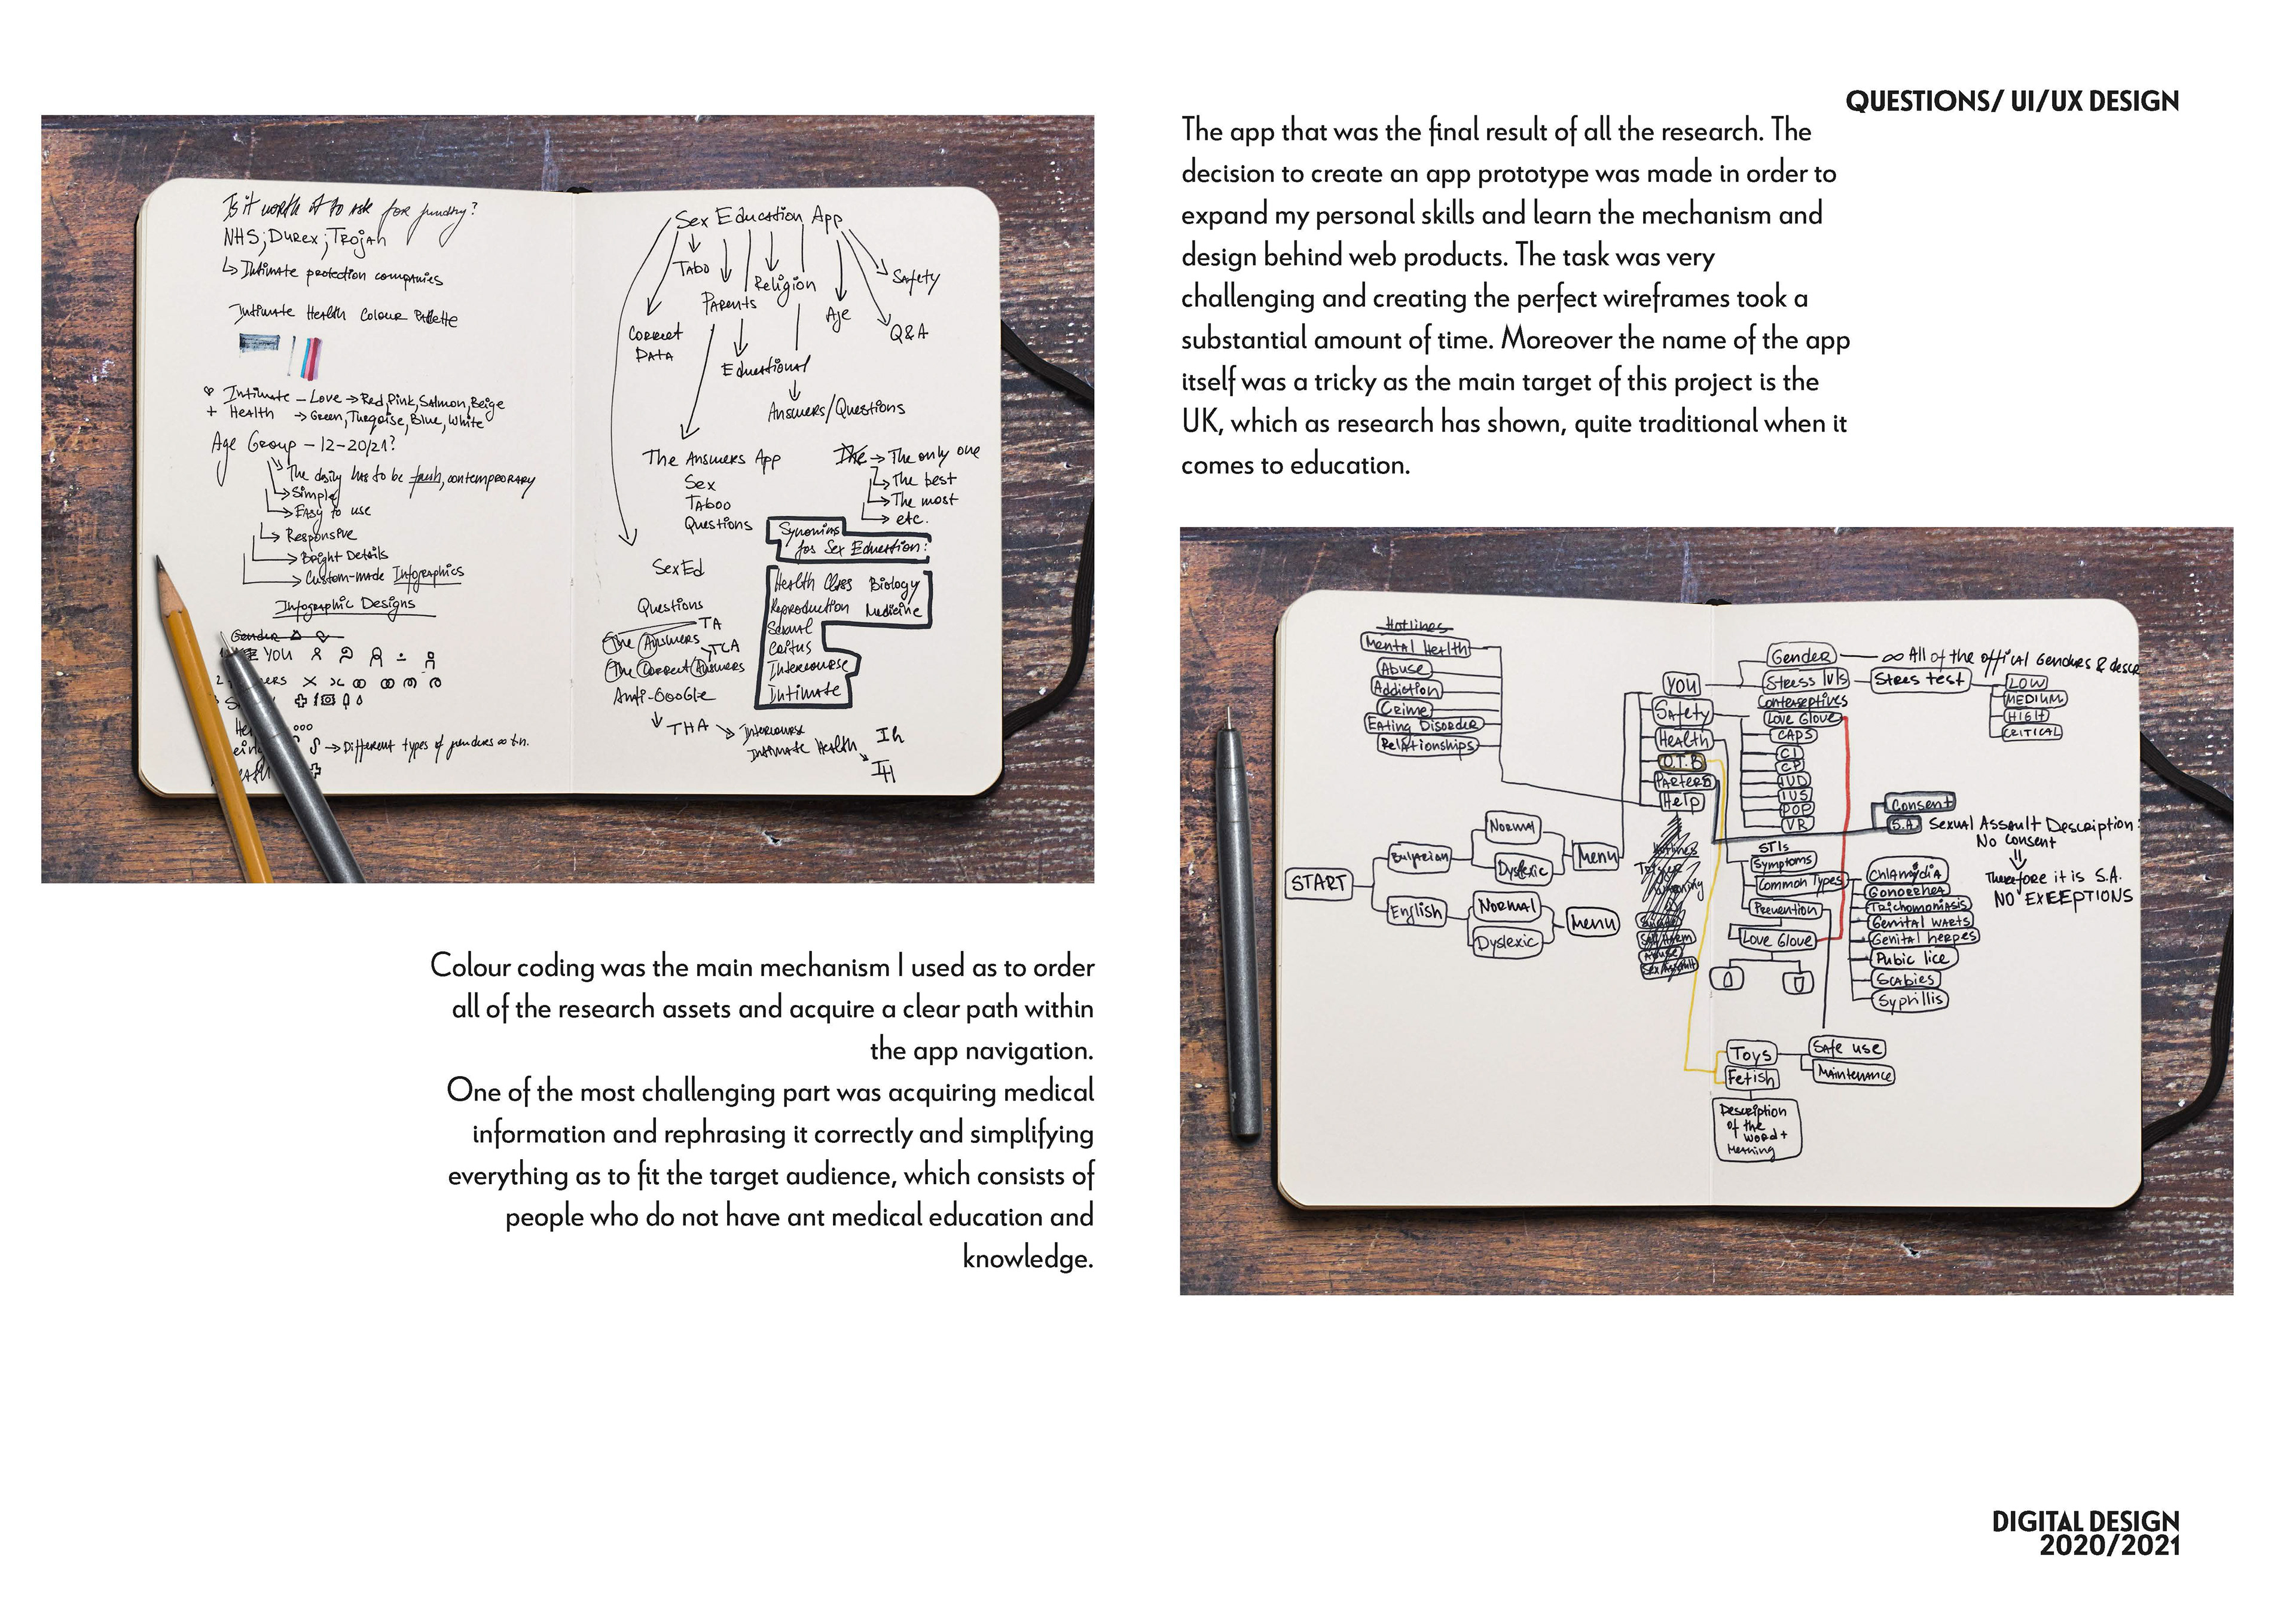 QUESTIONS/ UI/UX DESIGN
Is it worth it to ask for funding?
NHS; Durex; Trojan
Intimate protection companies
Intimate Health Colour Palette
Intimate – Love → Red, Pink, Salmon, Beige
+ Health → Green, Turqoise, Blue, White
Age Group – 12–20/21?
The has to be fresh, contemporary
Simple
Easy to use
Responsive
Bright Details
Custom-made Infographics
Infographic Designs
Gender
YOU
→ Different types of genders
Sex Education App
Tabo
Parents
Religion
Age
Safety
Q&A
Correct
Data
Educational
Answers/Questions
The Answers App
Sex
Taboo
Questions
The → The only one
The best
The most
etc.
Synonims
for Sex Education:
Health Class Biology
Reproduction Medicine
Sexual
Coitus
Intercourse
Intimate
SexEd
Questions
The Answers TA
The Correct Answers TCA
Anti-Google
THA
Intercourse
Intimate Health
Ih
IH
The app that was the final result of all the research. The
decision to create an app prototype was made in order to
expand my personal skills and learn the mechanism and
design behind web products. The task was very
challenging and creating the perfect wireframes took a
substantial amount of time. Moreover the name of the app
itself was a tricky as the main target of this project is the
UK, which as research has shown, quite traditional when it
comes to education.
Colour coding was the main mechanism I used as to order
all of the research assets and acquire a clear path within
the app navigation.
One of the most challenging part was acquiring medical
information and rephrasing it correctly and simplifying
everything as to fit the target audience, which consists of
people who do not have ant medical education and
knowledge.
Hotlines
Mental Health
Abuse
Addiction
Crime
Eating Disorder
Relationships
START
Bulgarian
English
Normal
Dyslexic
Menu
Normal
Dyslexic
Menu
YOU
Safety
Health
O.T.B
Help
Gender
∞ All of the offical Genders &
Stress lvls
Stres test
LOW
MEDIUM
HIGH
CRITICAL
Contraseptives
Love Glove
CAPS
CI
CP
IUD
IUS
POP
VR
Consent
S.A. Sexual Assault Description:
No Consent
Therefore it is S.A.
NO EXEEPTIONS
STIs
Symptoms
Common Types
Prevention
Love Glove
Chlamydia
Gonorrhea
Trichomoniasis
Genital warts
Genital herpes
Pubic lice
Scabies
Syphillis
Toys
Fetish
Safe use
Maintenance
Description
of the
word +
Meaning
DIGITAL DESIGN
2020/2021